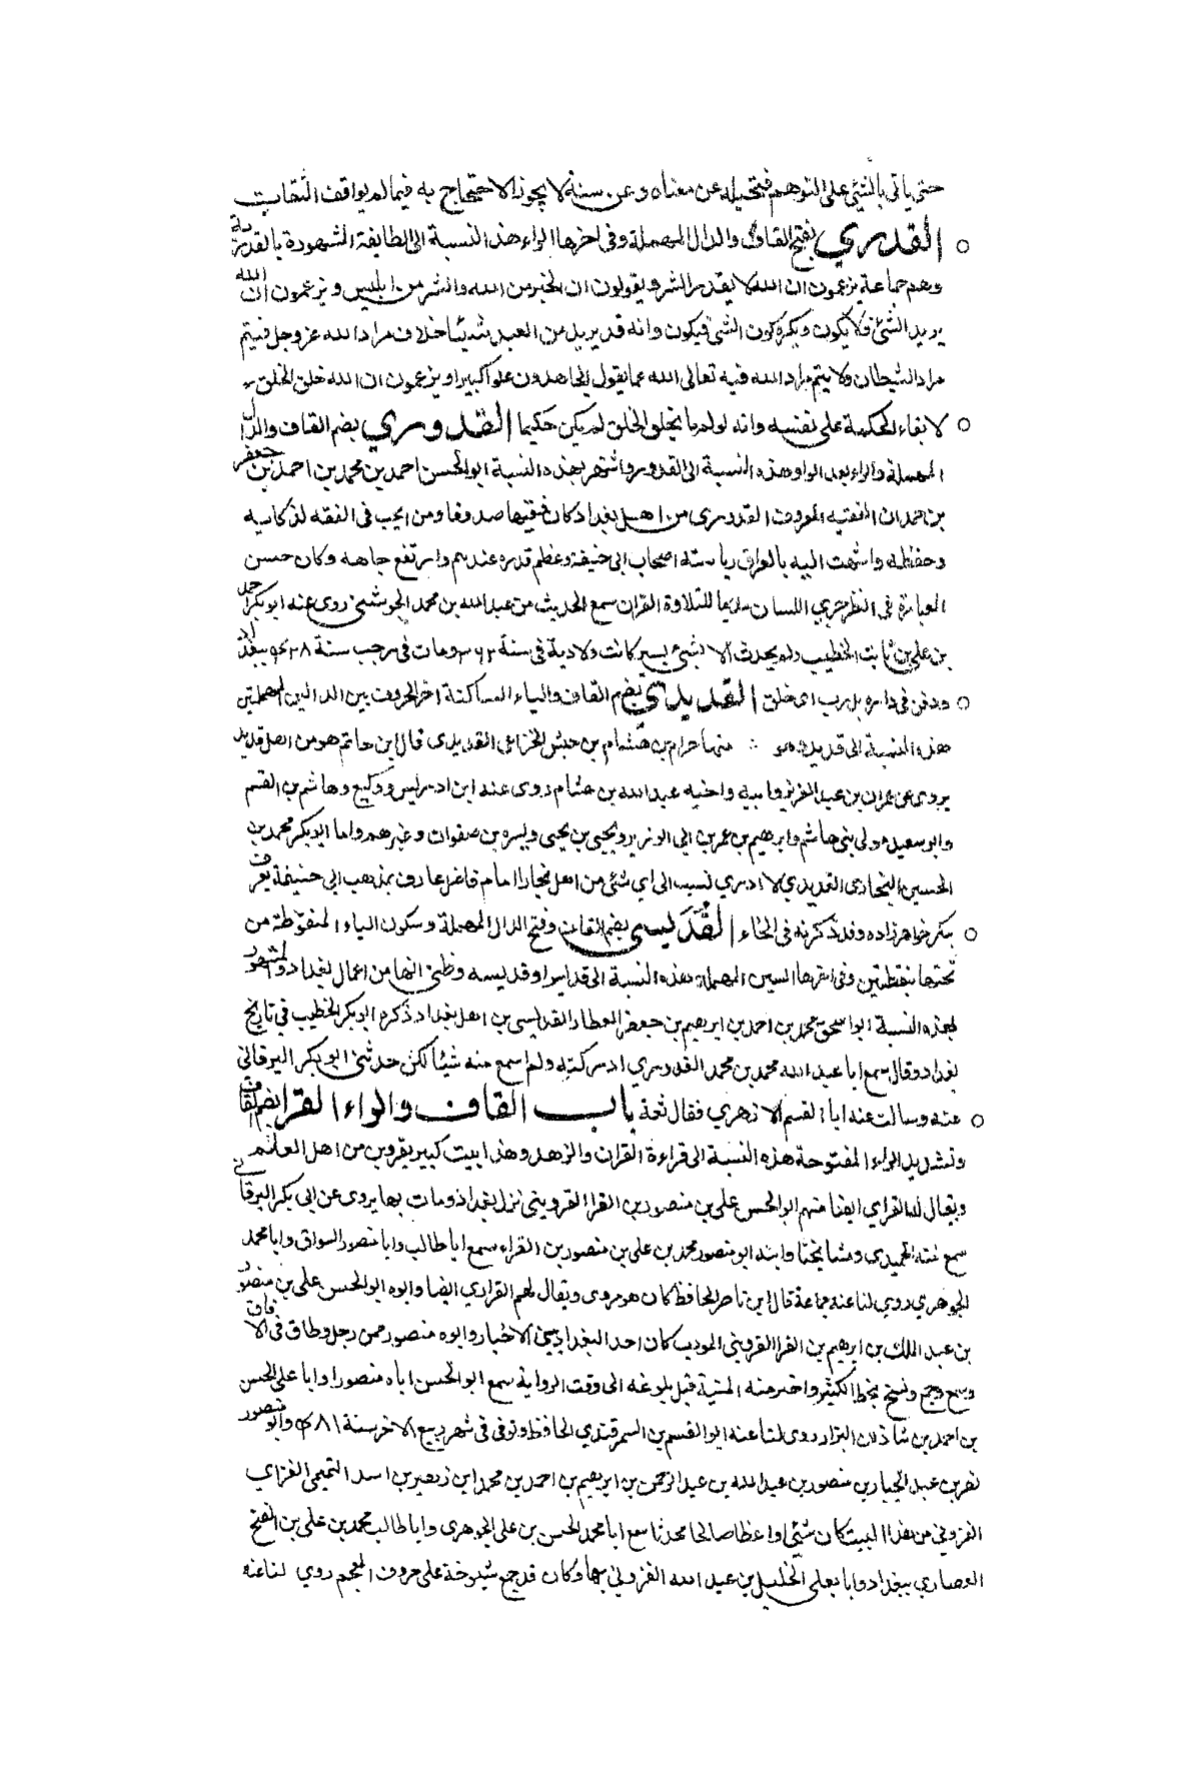 حتى ياتي بالشئ على التوهم فيحيله عن معناه وعن سننه لا يجوز الاحتجاج به فيما لم يوافق الثقات
القدري بفتح القاف والدال المهملة وفي اخرها الراء هذ النسبة الى الطايفة المشهورة بالقدرية
وهم جماعة يزعمون ان الله لا يقدر الشر ويقولون ان الخير من الله والشر من ابليس ويزعمون ان الله
يريد الشئ فلا يكون ويكره كون الشئ فيكون وانه قد يريد من العبد شيئا خلاف مراد الله عز وجل فيتم
مراد الشيطان ولا يتم مراد الله فيه تعالى الله عما يقول الجاهدون علوا كبيرا ويزعمون ان الله خلق الخلق
لابقاء الحكمة على نفسه وانه لو لم يخلق الخلق لم يكن حكيما القدوري بضم القاف والدال
المهملة والراء بعد الواو هذه النسبة الى القدور واشتهر بهذه النسبة ابو الحسن احمد بن محمد بن احمد بن جعفر
بن حمدان الفقيه المعروف القدوري من اهل بغداد كان فقيها صدوقا ومن انجب في الفقه لذكايه
وحفظه وانتهت اليه بالعراق رياسة اصحاب ابي حنيفة وعظم قدره عندهم وارتفع جاهه وكان حسن
العبارة في النظر جري اللسان مديما للتلاوة القران سمع الحديث من عبيد الله بن محمد الجوشني روى عنه ابو بكر احمد
بن علي بن ثابت الخطيب ولم يحدث الا بشئ يسير كانت ولادته في سنة ٣٦٢ ومات في رجب سنة ٤٢٨ ببغداد
ودفن في داره بدرب ابي خلق القديدي بضم القاف والياء الساكنة اخر الحروف بين الدالين المهملتين
هذه النسبة الى قديد وهو ∴ منها حرام بن هشام بن حبش الخزاعي القديدى قال ابن حاتم هو من اهل قديد
يروى عن عمران بن عبد العزيز وابيه واخيه عبد الله بن هشام روى عنه ابن ادريس ووكيع وهاشم بن القسم
وابو سعيد مولى بني هاشم وابرهيم بن عمر بن ابي الوزير ويحيى بن يحيى ويسره بن صفوان وغيرهم واما ابو بكر محمد بن
الحسين البخارى القديدي لا ادري نسب الى اي شئ من اهل بخارا امام فاضل عارف بمذهب ابي حنيفة يعرف
ببكر خواهر زاده وقد ذكرته في الخاء القديسي بضم القاف وفتح الدال المهملة وسكون الياء المنقوطة من
تحتها بنقطتين وفي اخرها السين المهملة هذه النسبة الى قداس او قديسه وظني انها من اعمال بغداد والمشهور
بهذه النسبة ابو اسحق محمد بن احمد بن ابرهيم بن جعفر العطار القديسي من اهل بغداد ذكره ابو بكر الخطيب في تاريخ
بغداد وقال سمع ابا عبد الله محمد بن محمد القدوري ادركته ولم اسمع منه شيئا لكن حدثني ابو بكر البرقاني
عنه وسالت عنه ابا القسم الازهري فقال ثقة باب القاف والراء القرا بضم القاف
وتشديد الراء المفتوحة هذه النسبة الى قراءة القران والزهد وهذا بيت كبير بقزوين من اهل العلم
ويقال له القراي ايضا منهم ابو الحسن علي بن منصور بن القرا القزويني نزل بغداد ومات بها يروى عن ابي بكر البرقاني
سمع منه الحميدي ومشايخنا وابنه ابو منصور محمد بن علي بن منصور بن القراء سمع ابا طالب وابا منصور السواق وابا محمد
الجوهري روي لنا عنه جماعة قال ابن ناصر الحافظ كان هو مروى ويقال لهم القراري ايضا وابوه ابو الحسن علي بن منصور
بن عبد الملك بن ابرهيم بن القرا القزويني المودب كان احد البغداديين الاخيار وابوه منصور ممن رحل وطاف في الافاق
وسمع وجمع ونسخ بخطه الكثير واخترمته المنية قبل بلوغه الى وقت الرواية سمع ابو الحسن اباه منصورا وابا علي الحسن
بن احمد بن شاذان البزار روى لنا عنه ابو القسم بن السمرقندي الحافظ وتوفى في شهر ربيع الاخر سنة ٤٨١ وابو منصور
نصر بن عبد الجبار بن منصور بن عبد الله بن عبد الرحمن بن ابرهيم بن احمد بن محمد ابن زهير بن اسد التميمي القراي
القزويني من هذا البيت كان شيخا واعظا صالحا محدثا سمع ابا محمد الحسن بن علي الجوهرى وابا طالب محمد بن علي بن الفتح
العصاري ببغداد وابا يعلى الخليل بن عبد الله القزويني بها وكان قد جمع شيوخه على حروف المعجم روي لنا عنه